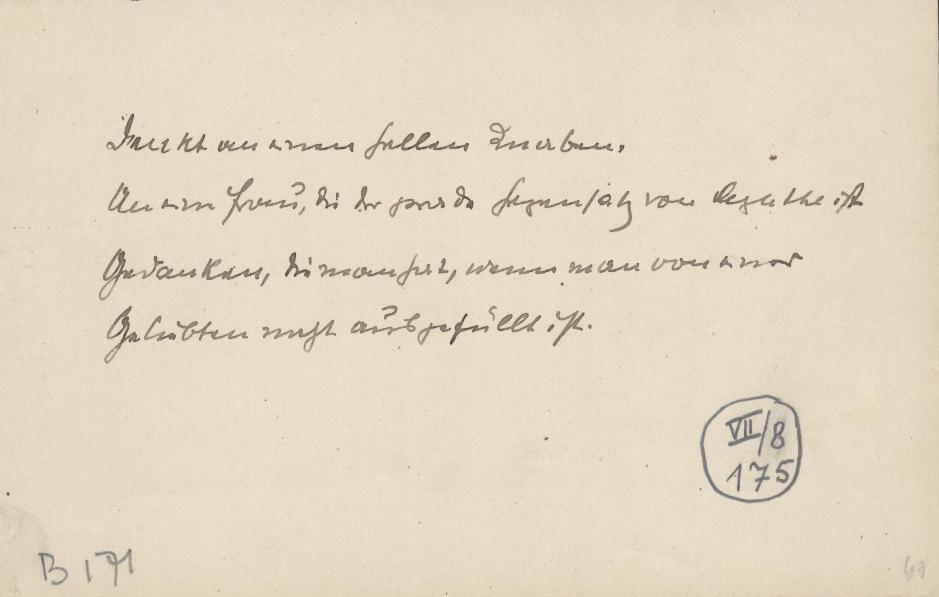 Denkt an einen hellen Knaben.
An eine Frau, die der gerade Gegensatz von Agathe ist
Gedanken, die man hat, wenn man von einer
Geliebten nicht ausgefüllt ist.
VII/8
175
B 171
69